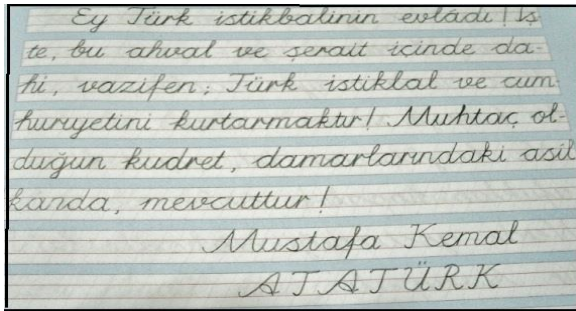 Ey Türk istikbalinin evlâdı! İş
te, bu ahval ve şerait içinde da-
hi, vazifen; Türk istiklal ve cum-
huriyetini kurtarmaktır! Muhtaç ol-
duğun kudret, damarlarındaki asil
kanda, mevcuttur!
Mustafa Kemal
ATATÜRK